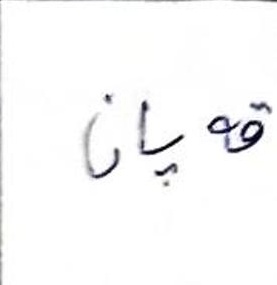 قه پان